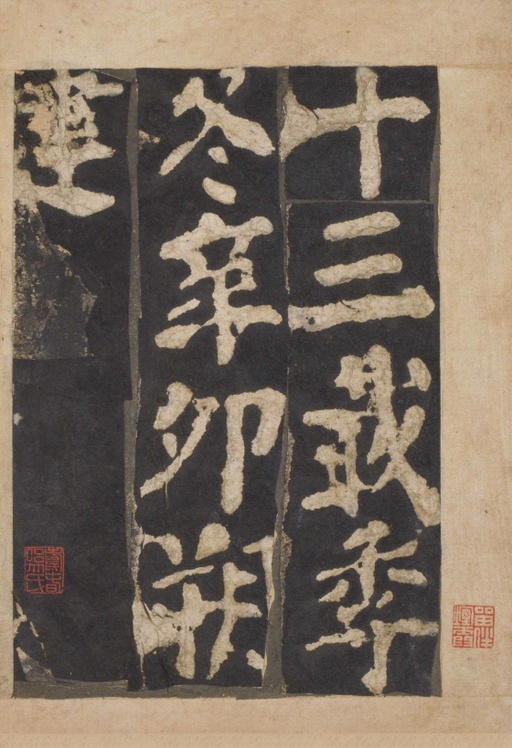 十三載季
冬辛卯朔
建